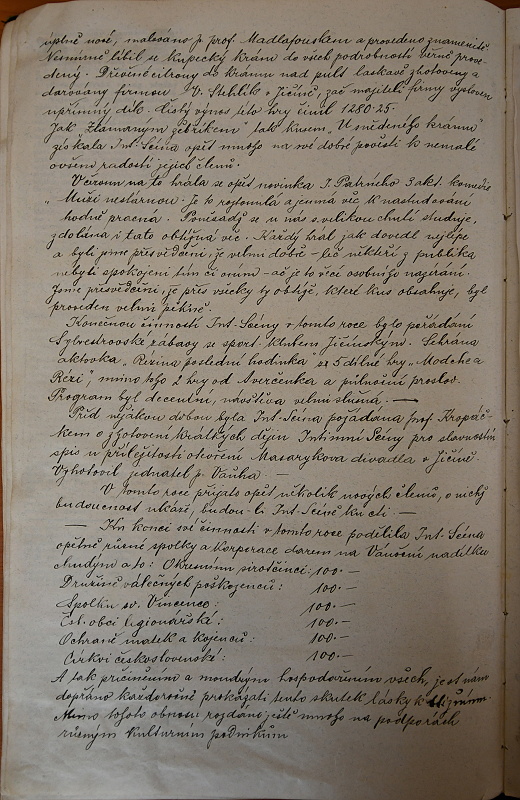 úplně nové, malováno p. prof. Madlafouskem a provedeno znamenitě.
Nesmírně líbil se kupecký krám do všech podrobností věrně prove-
dený. Dřevěné citrony do krámu nad pult laskavě zhotoveny a
darovány firmou V. Stehlík v Jičíně, zač majiteli firmy vysloven
upřímný dík. Čistý výnos této hry činil 1280·25.
Jak "Zlámaným žebříkem" tak kusem "U snědeného krámu"
získala Int. Scéna opět mnoho na své dobré pověsti k nemalé
ovšem radosti jejich členů.
Včerou na to hrála se opět novinka J. Patrného 3 akt. komedie
"Muži nestárnou". Je to roztomilá a jemná věc k nastudování
hodně pracná. Poněvadž se u nás s velikou chutí studuje,
zdolána i tato obtížná věc. Každý hrál jak dovedl nejlépe
a byli jsme přesvědčeni, že velmi dobře – leč někteří z publika
nebyli spokojeni tím či oním – ač je to věcí osobního nazírání.
Jsme přesvědčeni, že přes všecky ty obtíže, které kus obsahuje, byl
proveden velmi pěkně.
Konečnou činností Int. Scény v tomto roce bylo pořádání
Sylvestrovské zábavy se sport. klubem Jičínským. Sehrána
aktovka "Rézina poslední hodinka" ze 5 dílné hry "Modche a
Rézi", mimo toho 2 hry od Averčenka a půlnoční proslov.
Program byl decentní, návštěva velmi slušná. —
Před nějakou dobou byla Int. Scéna požádána prof. Kropáč-
kem o zhotovení krátkých dějin Intimní Scény pro slavnostní
spis u příležitosti otevření Masarykova divadla v Jičíně.
Vyhotovil jednatel p. Vaňha —
V tomto roce přijato opět několik nových členů, o nichž
budoucnost ukáže, budou-li Int. Scéně ke cti. —
— Ku konci své činnosti v tomto roce podělila Int. Scéna
opětně různé spolky a korporace darem na Vánoční nadílku
chudým a to: Okresním sirotčinci: 100·—
Družině válečných poškozenců: 100·—
Spolku sv. Vincence: 100·—
Čsl. obci legionářské: 100·—
Ochraně matek a kojenců: 100·—
Církvi československé: 100·—
A tak přičiněním a moudrým hospodařením všech, jest nám
dopřáno každoročně prokázati tento skutek lásky k bližnímu.
Mimo tohoto obnosu rozdáno ještě mnoho na podporách
různým kulturním podnikům